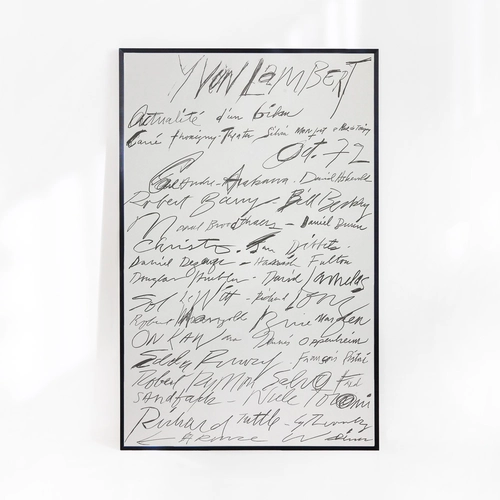 YVON LAMBERT
Actualité d'un bilan
Carré Thorigny-Theater Silvia Monfort
Oct. 72
Carl Andre - Arakawa - David Askevold
Robert Barry Bill Beckley
Marcel Broodthaers - Daniel Buren
Christo. Jan Dibbets.
Daniel Dezeuze - Hamish Fulton
Douglas Huebler - David Lamelas
Sol LeWitt - Richard Long
Robert Mangold Brice Marden
ON KAWARA Dennis Oppenheim
Edda Renouf. François Ristori
Robert Ryman Salvo Fred
SANDBACK - Niele Toroni
Richard Tuttle - Cy Twombly
Lawrence Weiner